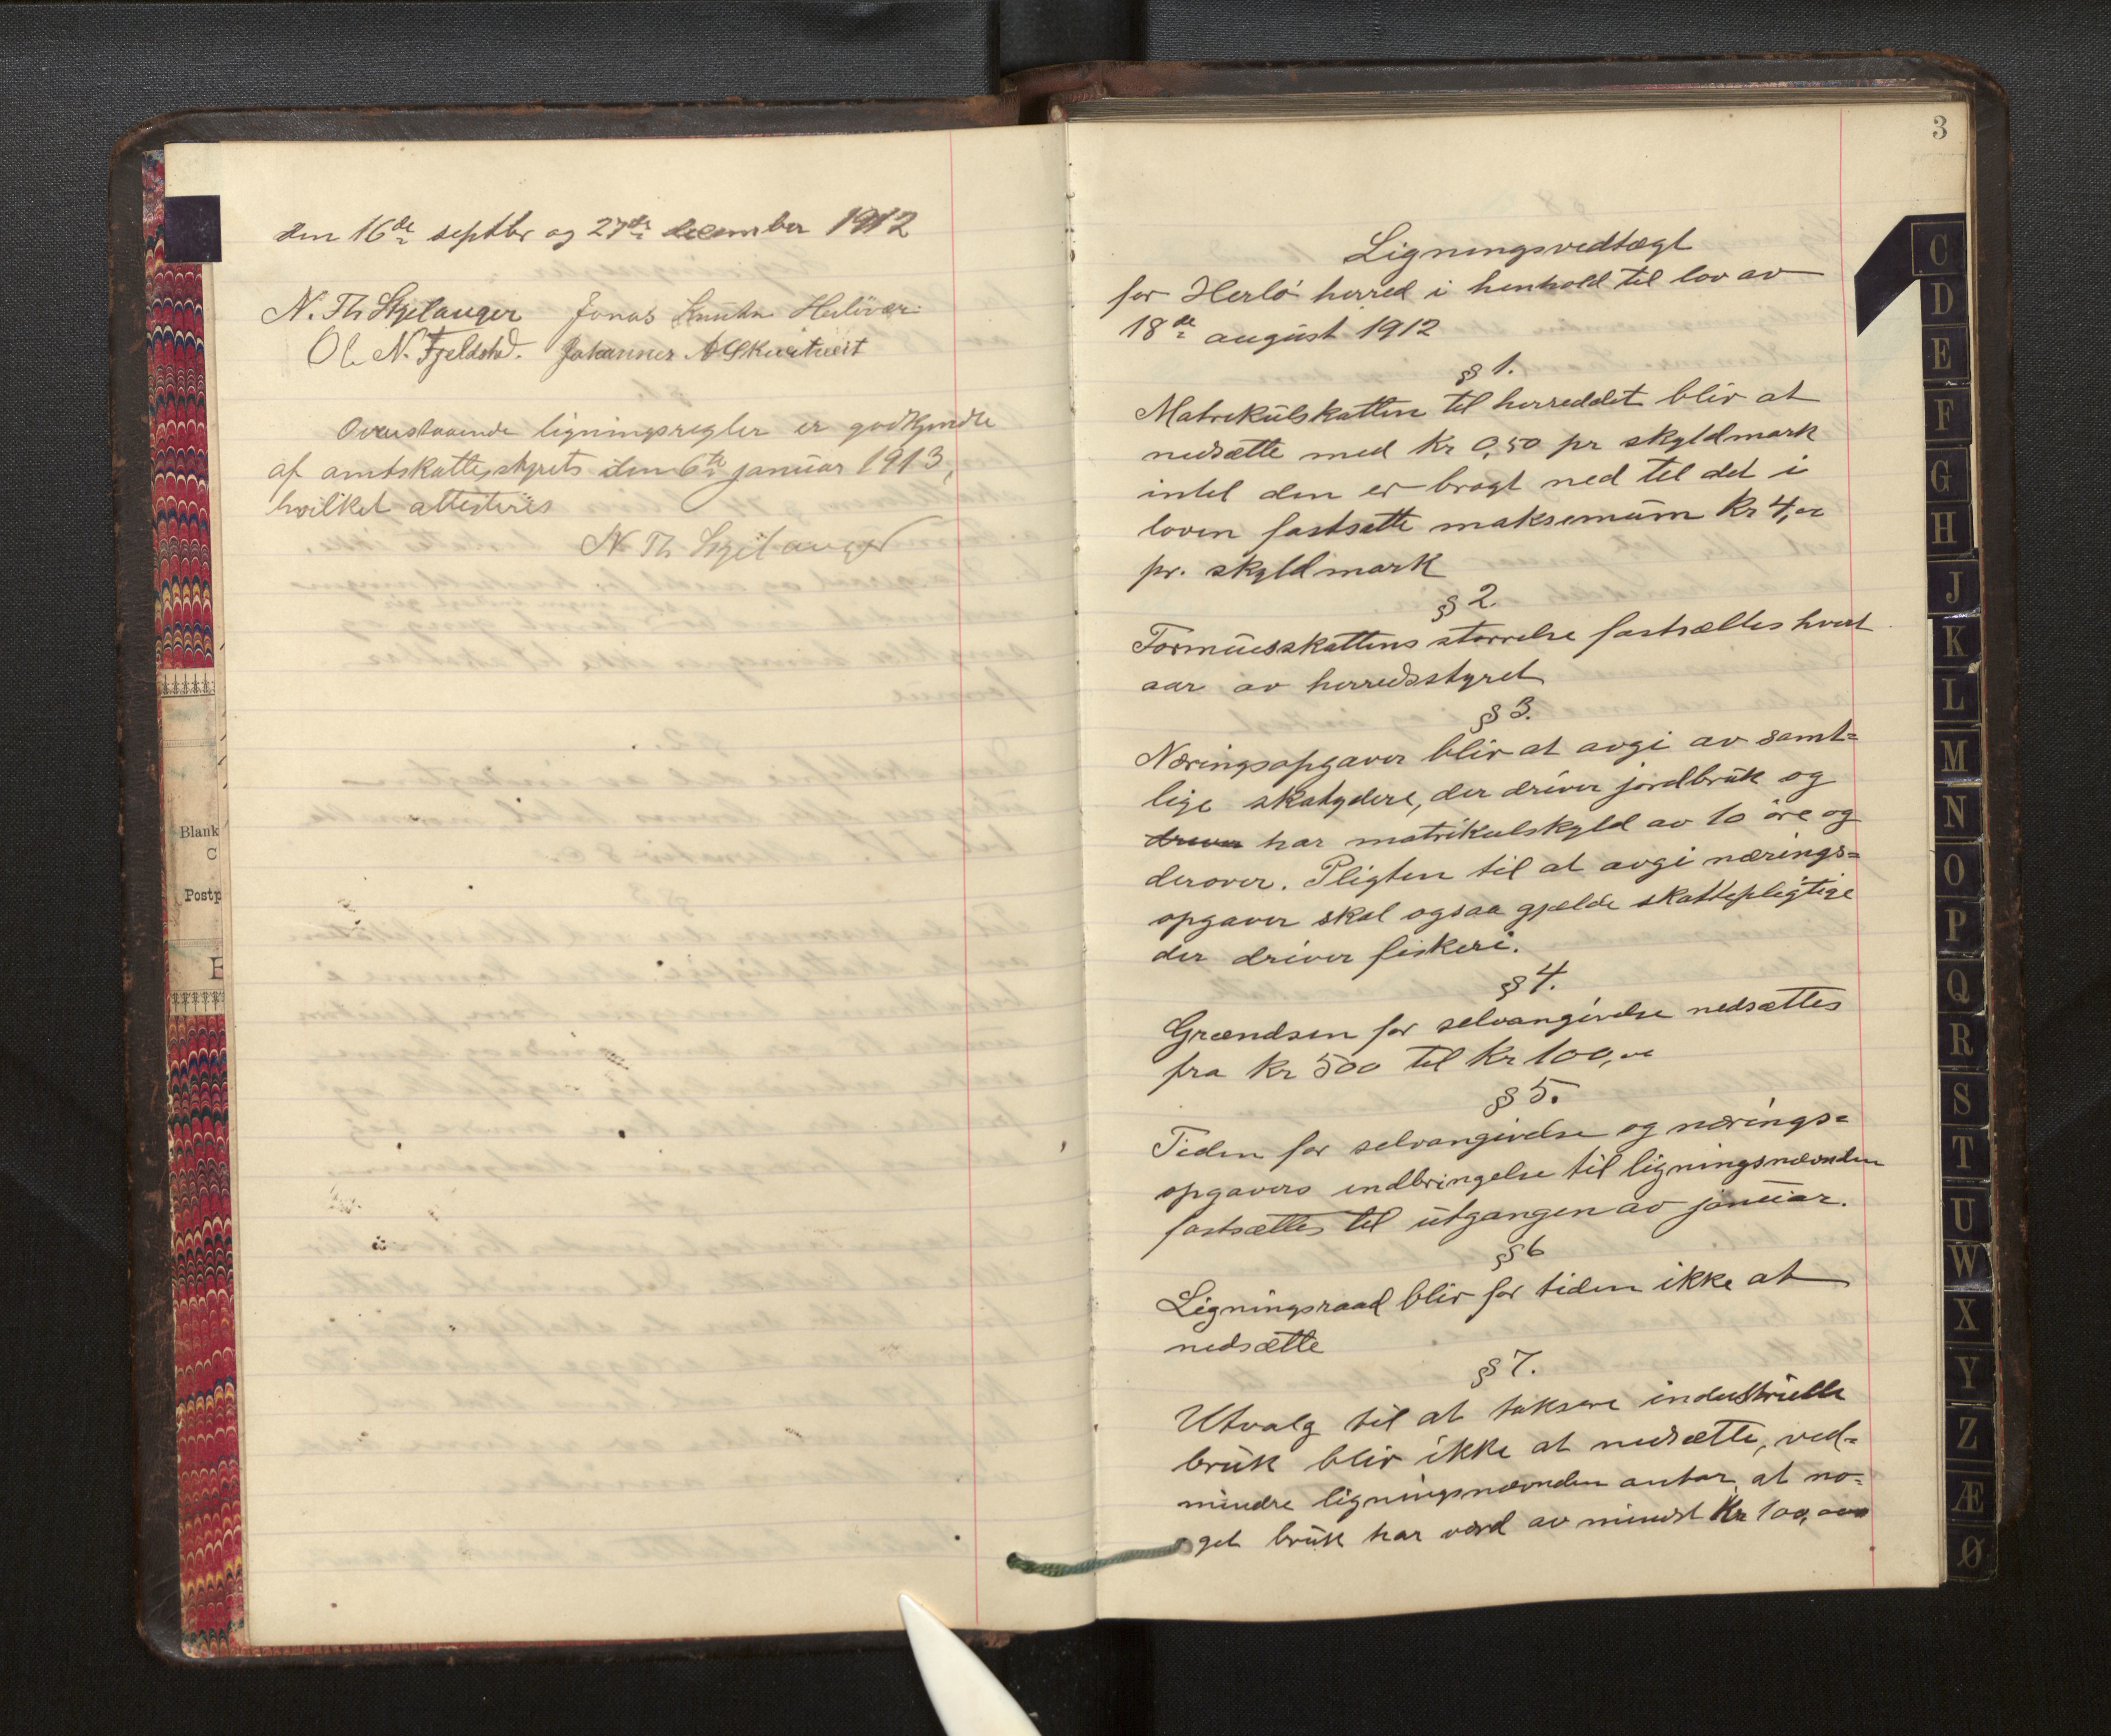 den 16de septbr og 27de december 1912
N. Th Skjelanger Jonas Knutsn
Ole N. Fjeldstad. Johannes A
Ovenstaaende ligningsregler er godkjendte
af amtskattestyrets den 6te januar 1913,
hvilket attesteres
N Th Skjelanger
Blank
C
Postp
E
3
Ligningsvedtægt
for Herlø herred i henhold til lov av
18de august 1912
§ 1.
Matrikulskatten til herreddet blir at
nedsætte med Kr 0,50 pr skyldmark
intil den er bragt ned til det i
loven fastsatte maksemum Kr 4,00
pr. skyldmark
§ 2.
Formuesskattens størrelse fastsættes hvert
aar av herredsstyret
§ 3.
Næringsopgaver blir at avgi av samt=
lige skatydere, der driver jordbruk og
driver har matrikulskyld av 10 øre og
derover. Pligten til at avgi nærings=
opgaver skal ogsaa gjælde skattepligtige
der driver fiskeri.
§ 4.
Grændsen for selvangivelse nedsættes
fra Kr 500 til Kr 100,00
§ 5.
Tiden for selvangivelse og nærings=
opgavers indbringelse til ligningsnævnden
fastsættes til utgangen av januar.
§ 6
Ligningsraad blir for tiden ikke at
nedsætte
§ 7.
Utvalg til at taksere industrielle
bruk blir ikke at nedsætte, ved=
mindre ligningsnævnden antar, at no=
get bruk har værd av mindst Kr 100,000
C
D
E
F
G
H
J
K
L
M
N
O
P
Q
R
S
T
U
W
X
Y
Z
Æ
Ø